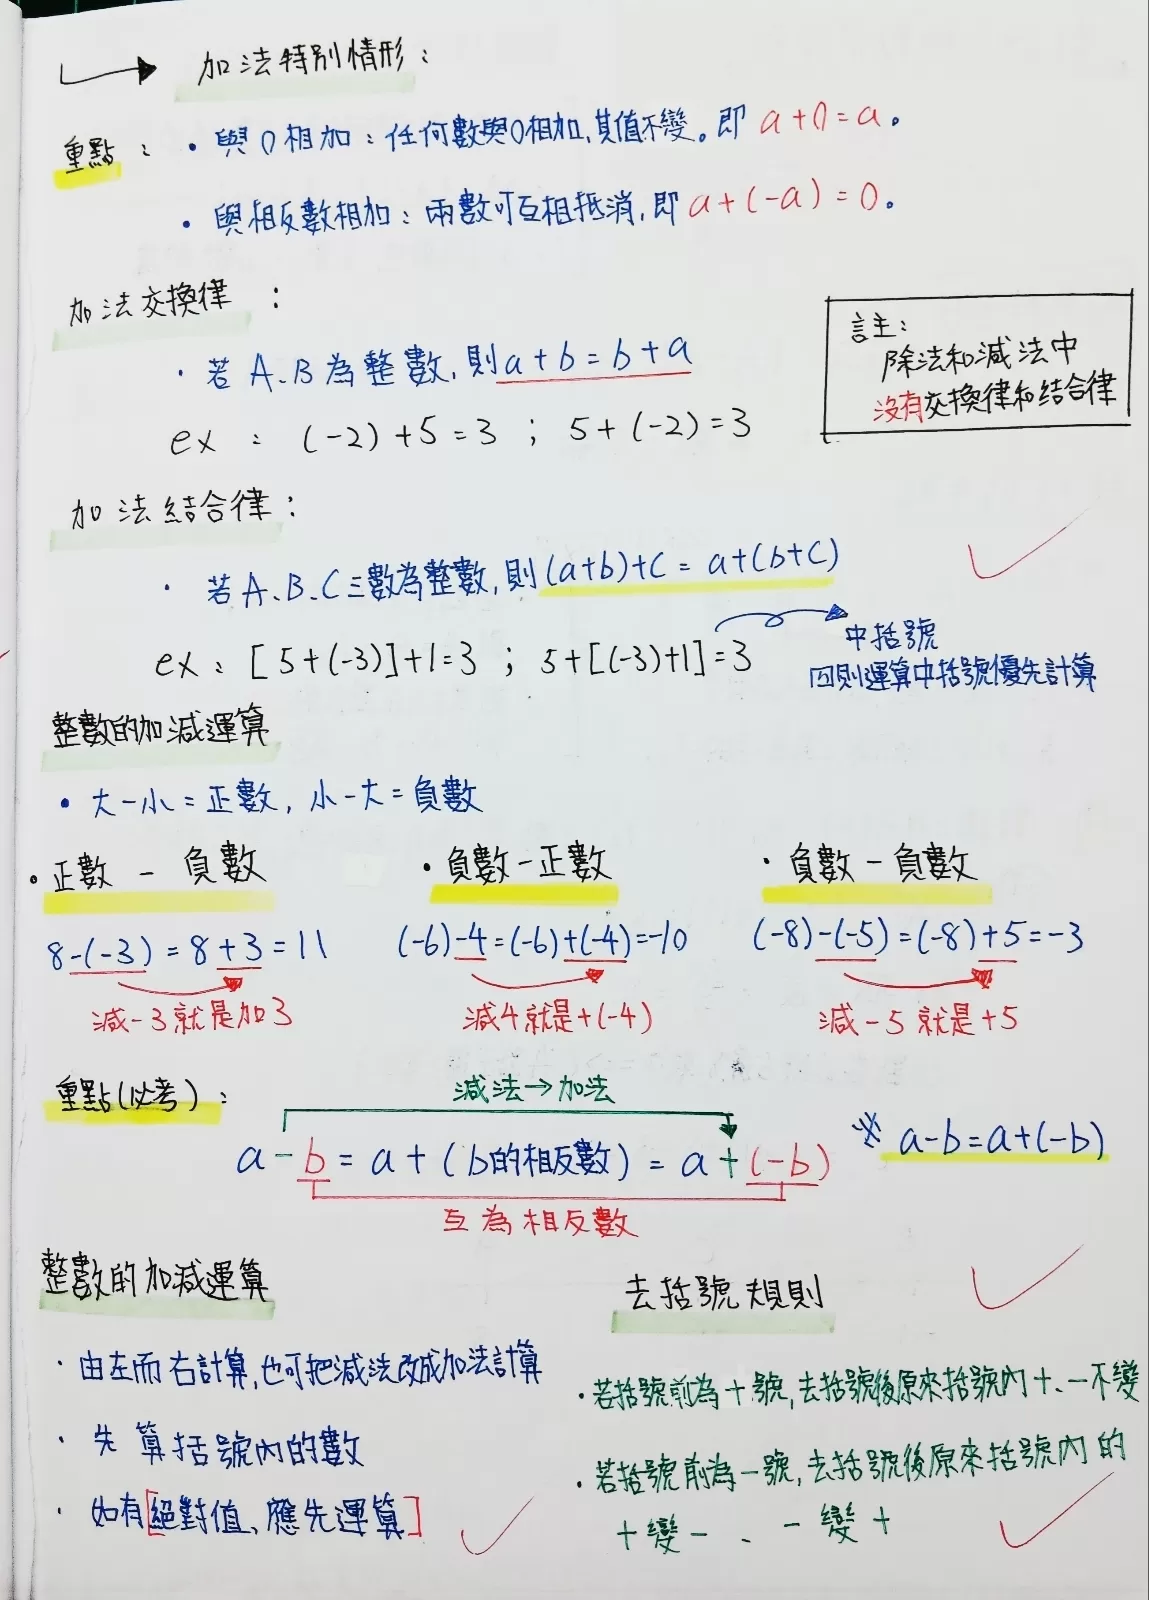 加法特別情形：
重點：・與0相加：任何數與0相加、其值不變。即 a+0=a。
・與相反數相加：兩數可互相抵消，即 a+(-a)=0。
加法交換律：
・若A、B為整數，則a+b=b+a
ex：(-2)+5=3；5+(-2)=3
註：
除法和減法中
沒有交換律和結合律
加法結合律：
・若A、B、C三數為整數，則(a+b)+C=a+(b+C)
ex：[5+(-3)]+1=3；5+[(-3)+1]=3
中括號
四則運算中括號優先計算
整數的加減運算
・大-小=正數，小-大=負數
・正數-負數
・負數-正數
・負數-負數
8-(-3)=8+3=11
(-6)-4=(-6)+(-4)=-10
(-8)-(-5)=(-8)+5=-3
減-3就是加3
減4就是+(-4)
減-5就是+5
重點(必考)：
減法→加法
a-b=a+(b的相反數)=a+(-b)
※ a-b=a+(-b)
互為相反數
整數的加減運算
・由左而右計算，也可把減法改成加法計算
・先算括號內的數
・如有[絕對值、應先運算]
去括號規則
・若括號前為+號，去括號後原來括號內+、-不變
・若括號前為-號，去括號後原來括號內的
+變-、-變+